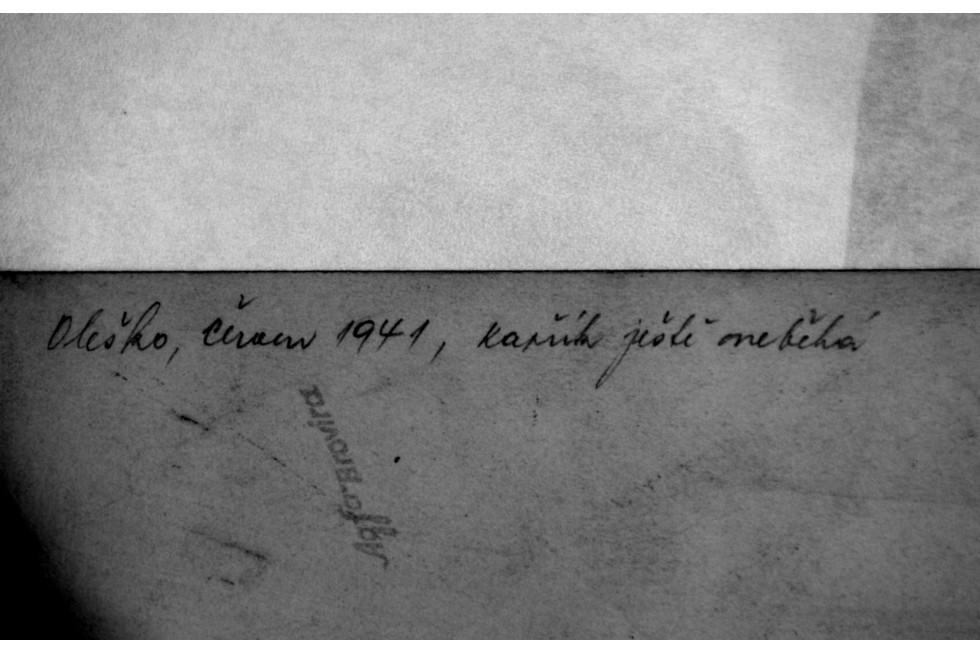 Oleško, červen 1941, kašík ještě neběhá
Agfa-Brovira